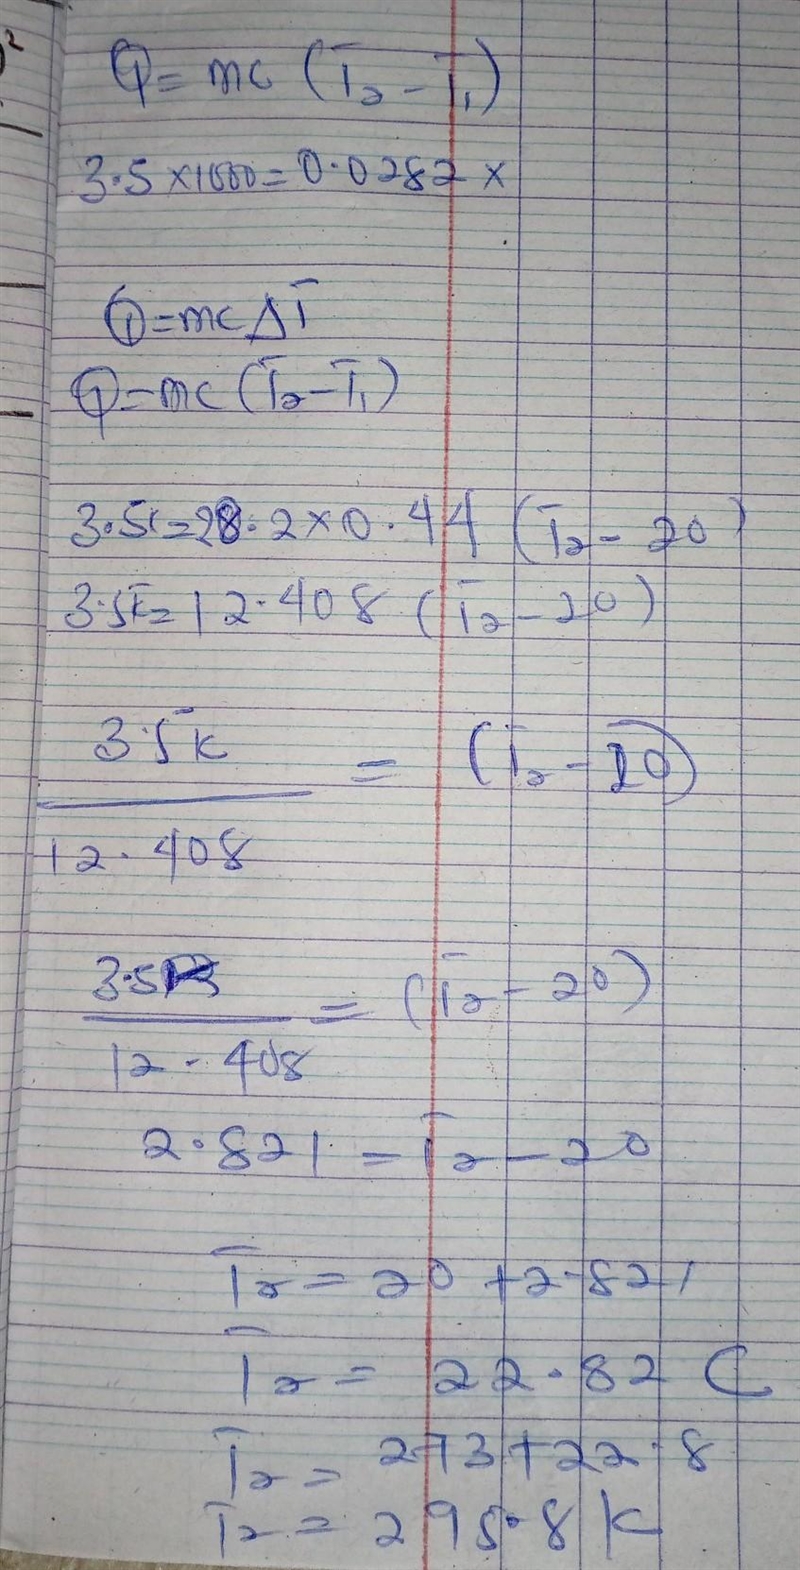 Q = mc (T₂ - T₁)
3.5 × 1000 = 0.0282 ×
Q = mc ΔT
Q = mc (T₂ - T₁)
3.5k = 28.2 × 0.44 (T₂ - 20)
3.5k = 12.408 (T₂ - 20)
3.5k
= (T₂ - 20)
12.408
3.5
= (T₂ - 20)
12.408
2.821 = T₂ - 20
T₂ = 20 + 2.821
T₂ = 22.82 C
T₂ = 273 + 22.8
T₂ = 295.8 K